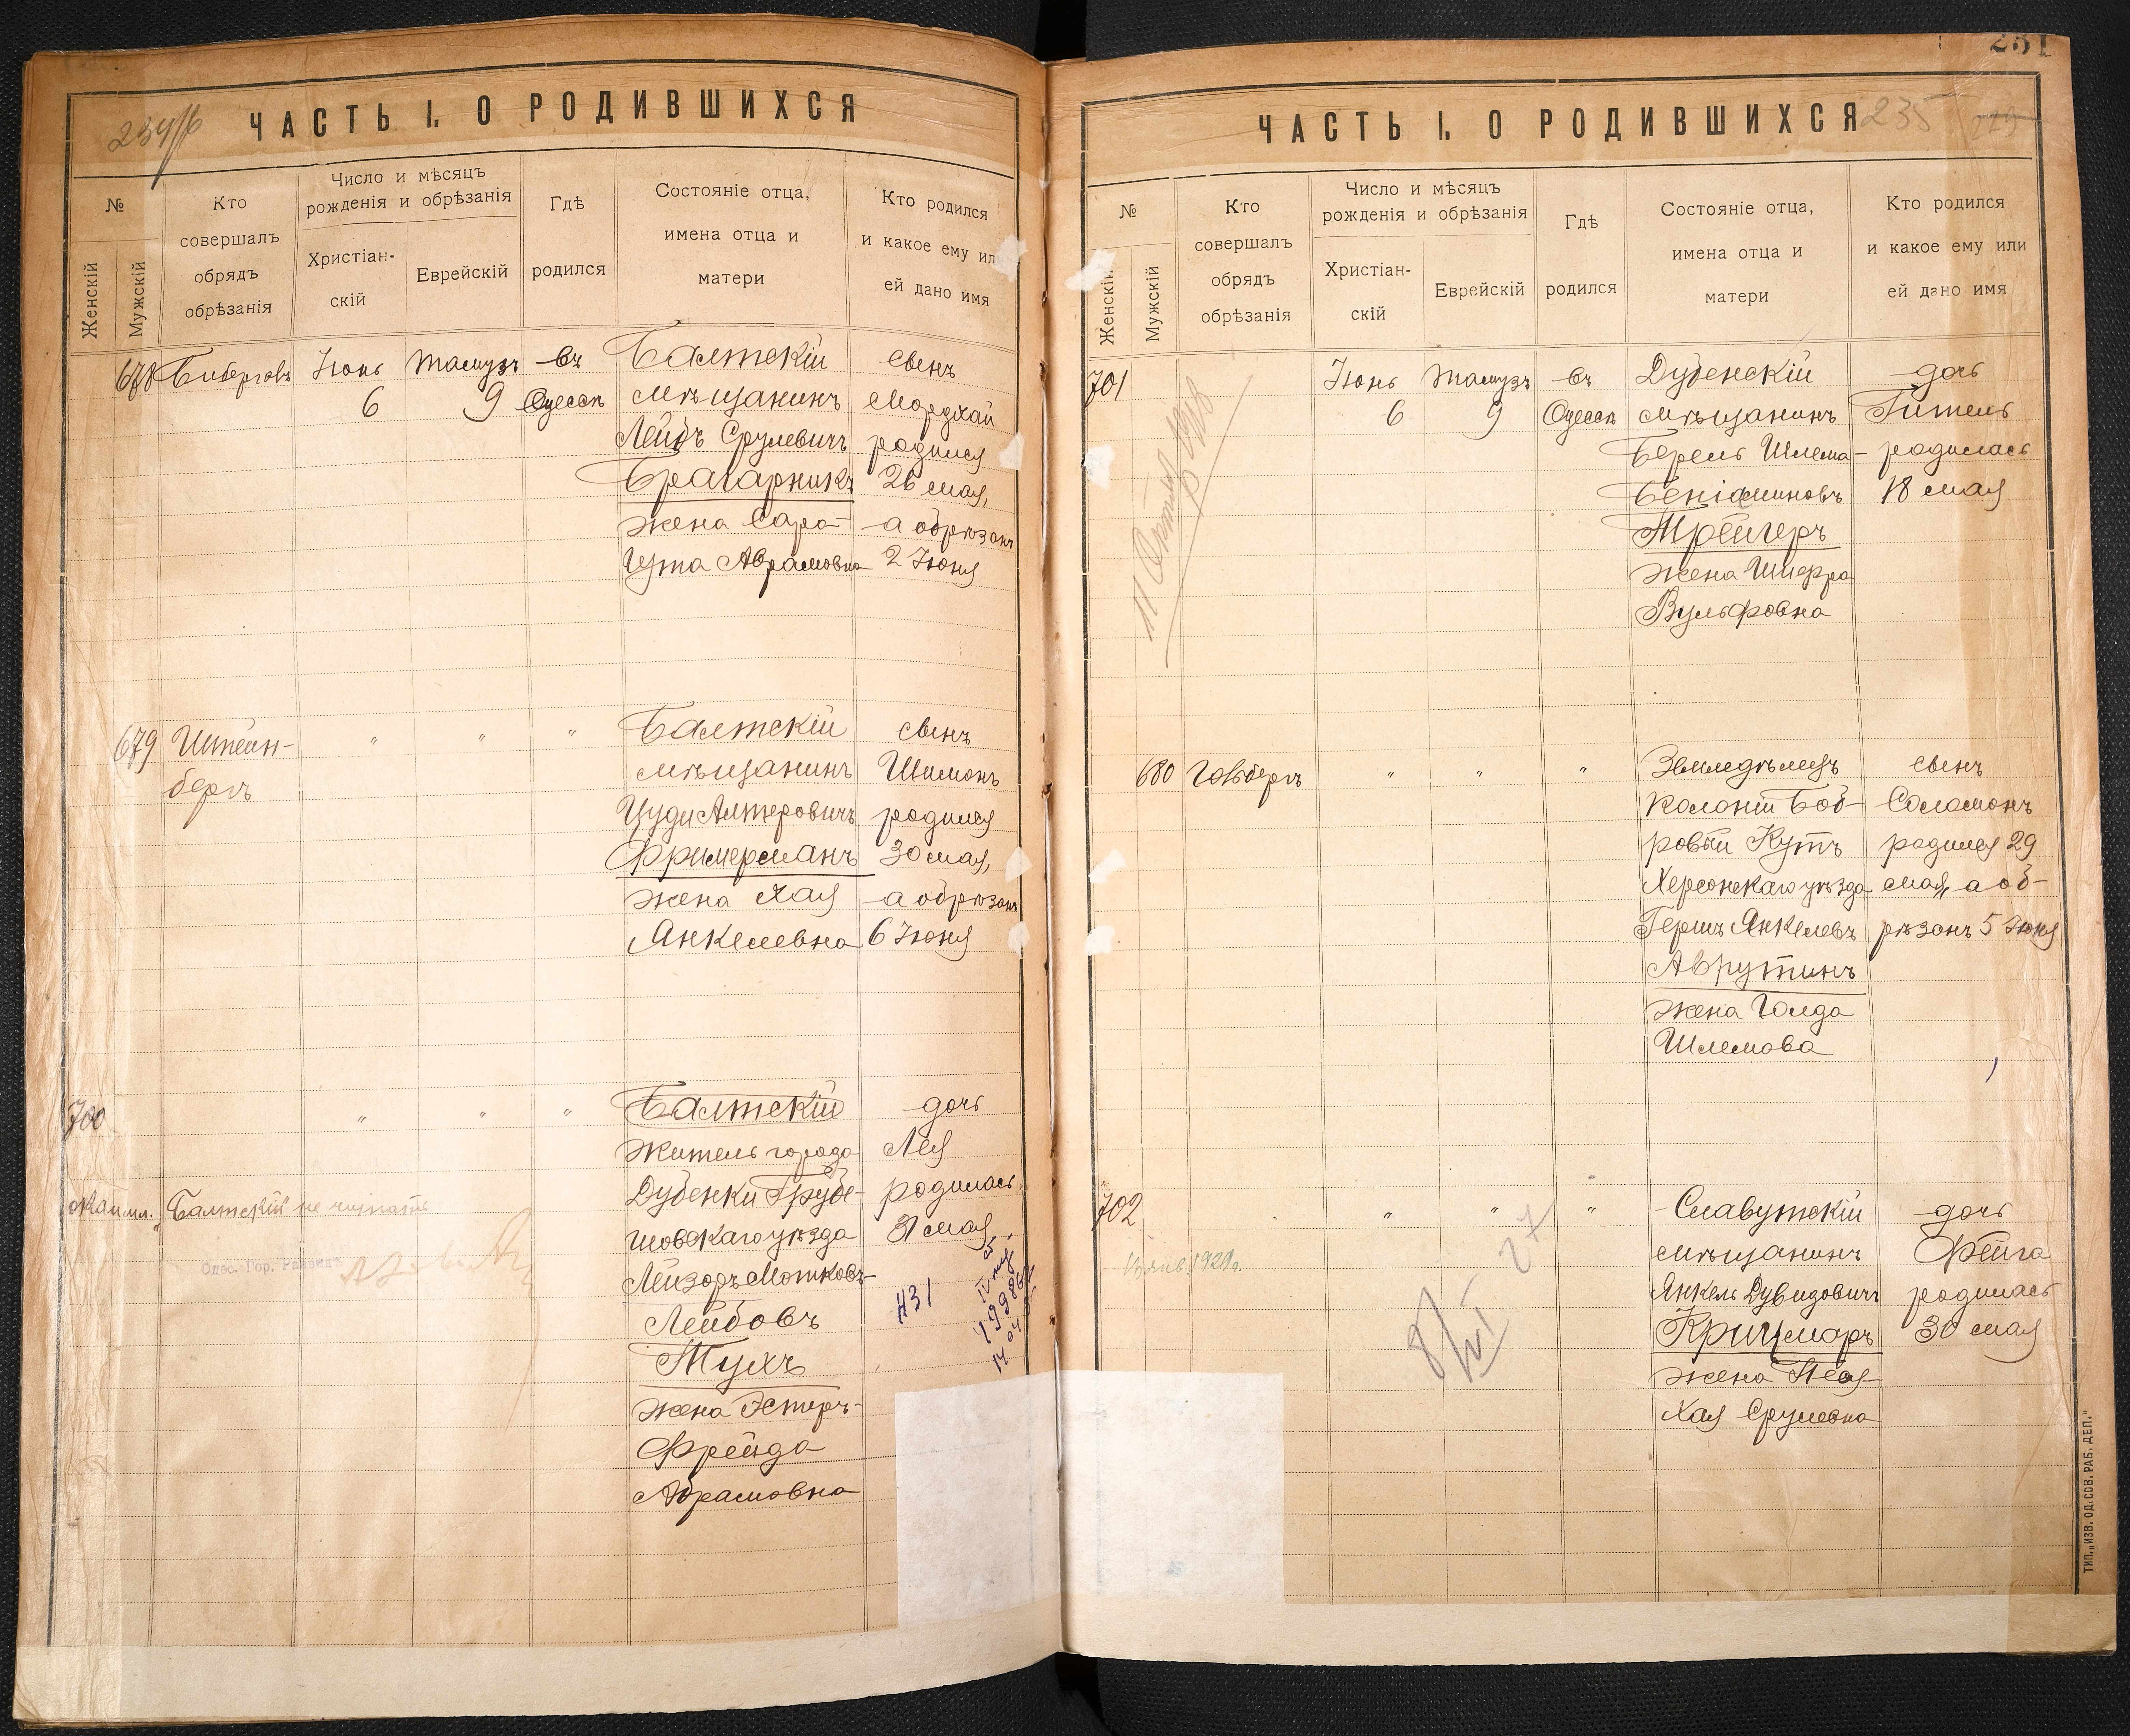 234/б
ЧАСТЬ I. О РОДИВШИХСЯ
№
Женскій
Мужскій
Кто
совершалъ
обрядъ
обрѣзанія
Число и мѣсяцъ
рожденія и обрѣзанія
Христіан-
скій
Еврейскій
Гдѣ
родился
Состояніе отца,
имена отца и
матери
Кто родился
и какое ему ил
ей дано имя
678
Іюнь
6
Тамузъ
9
въ
Одессѣ
Балтскій
мѣщанинъ
Лейбъ Срулевичъ
Брагарникъ
жена Сара-
Цупа Абрамовна
сынъ
Мордхай
родился
26 мая,
а обрѣзанъ
2 Іюня
679
Штейн-
бергъ
"
"
"
Балтскій
мѣщанинъ
Алтеровичъ
Фримерманъ
жена Хая
Янкелевна
сынъ
Шимонъ
родился
30 мая,
а обрѣзанъ
6 Іюня
700
"
"
"
Балтскій
житель города
Дубенки Грубе-
шовскаго уѣзда
Лейзоръ Мошковъ-
Лейбовъ
Тухъ
жена Эстеръ-
Фрейда
Абрамовна
дочь
Лея
родилась
31 мая
Балтскій не читать
Одес. Гор.
431
251
ЧАСТЬ I. О РОДИВШИХСЯ
235
№
Женскій
Мужскій
Кто
совершалъ
обрядъ
обрѣзанія
Число и мѣсяцъ
рожденія и обрѣзанія
Христіан-
скій
Еврейскій
Гдѣ
родился
Состояніе отца,
имена отца и
матери
Кто родился
и какое ему или
ей дано имя
701
Іюнь
6
Тамузъ
9
въ
Одессѣ
Дубенскій
мѣщанинъ
Берель Шлема-
Беніаминовъ
Трейгеръ
жена Шифра
Вульфовна
дочь
Гитель
родилась
18 мая
680
Гольбергъ
"
"
"
Земледѣлецъ
колоніи Боб-
ровый Кутъ
Херсонскаго уѣзда
Гершъ Янкелевъ
Аврутинъ
жена Голда
Шлемова
сынъ
Соломонъ
родился 29
мая, а об-
рѣзанъ 5 Іюня
702
"
"
"
Славутскій
мѣщанинъ
Янкель Дувидовичъ
Крицмаръ
жена Нея-
Хая Срулевна
дочь
Фейга
родилась
30 мая
27
8/VI
ТИП. „ИЗВ. ОД. СОВ. РАБ. ДЕП."